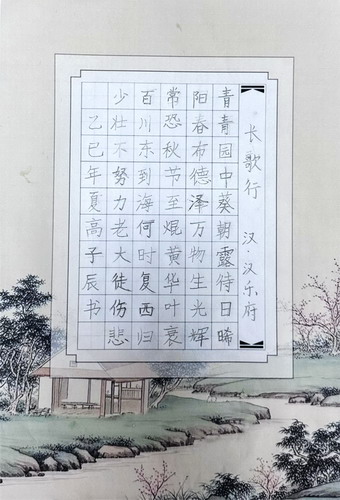 长歌行 汉 汉乐府
青青园中葵朝露待日晞
阳春布德泽万物生光辉
常恐秋节至焜黄华叶衰
百川东到海何时复西归
少壮不努力老大徒伤悲
乙巳年夏高子辰书